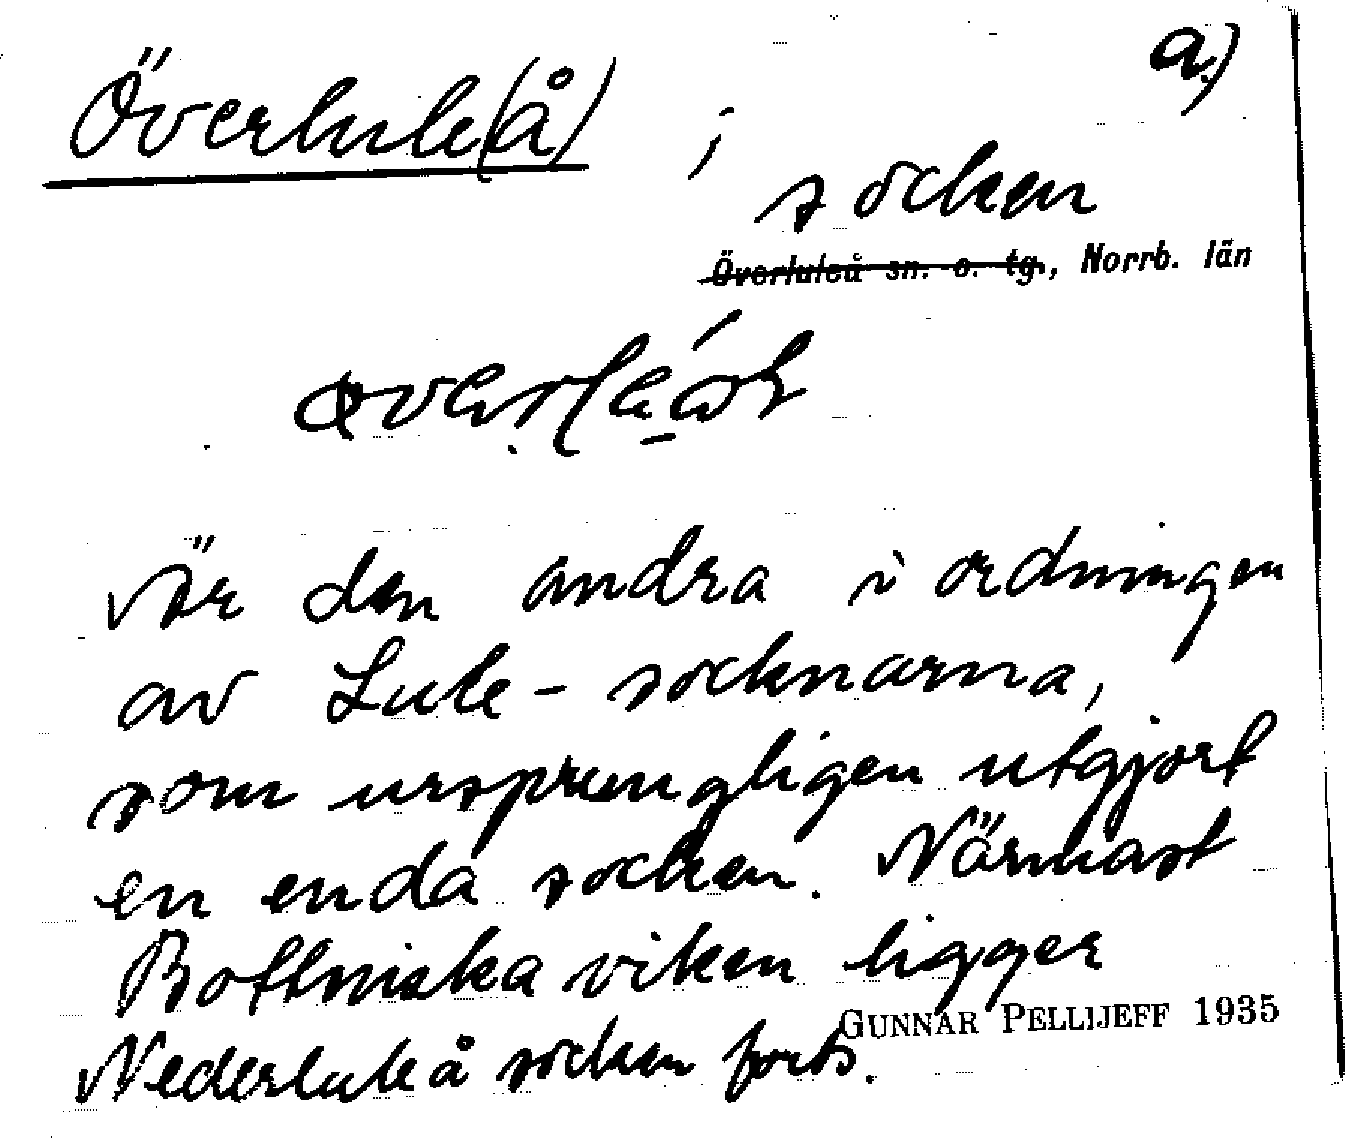 a)
Överlule(å) ;
socken
Överluleå sn. o. tg., Norrb. län
är den andra i ordningen
av Lule-socknarna,
som ursprungligen utgjort
en enda socken. Närmast
Bottniska viken ligger
GUNNAR PELLIJEFF 1935
Nederluleå socken forts.